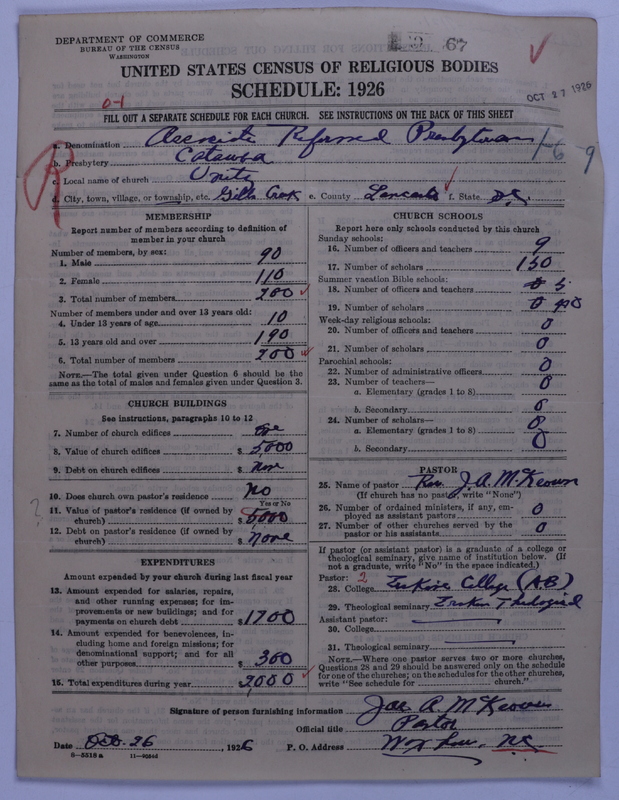 DEPARTMENT OF COMMERCE
BUREAU OF THE CENSUS
WASHINGTON
67
UNITED STATES CENSUS OF RELIGIOUS BODIES
SCHEDULE: 1926
OCT 27 1926
0-1
FILL OUT A SEPARATE SCHEDULE FOR EACH CHURCH. SEE INSTRUCTIONS ON THE BACK OF THIS SHEET
a. Denomination Associate Reformed Presbyterian
1-6-9
b. Presbytery Catawba
c. Local name of church Unity
d. City, town, village, or township, etc. Gills Creek e. County Lancaster f. State S.C.
MEMBERSHIP
Report number of members according to definition of member in your church
Number of members, by sex:
1. Male 90
2. Female 110
3. Total number of members 200
Number of members under and over 13 years old:
4. Under 13 years of age 10
5. 13 years old and over 190
6. Total number of members 200
NOTE.—The total given under Question 6 should be
same as the total of males and females given under Question 3.
CHURCH BUILDINGS
See instructions, paragraphs 10 to 12
7. Number of church edifices One
8. Value of church edifices $ 5,000
9. Debt on church edifices $ None
10. Does church own pastor's residence No
Yes or No
11. Value of pastor's residence (if owned by
church) $ 5000
12. Debt on pastor's residence (if owned by
church) $ None
EXPENDITURES
Amount expended by your church during last fiscal year
13. Amount expended for salaries, repairs,
and other running expenses; for im-
provements or new buildings; and for
payments on church debt $ 1700
14. Amount expended for benevolences, in-
cluding home and foreign missions; for
denominational support; and for all
other purposes $ 300
15. Total expenditures during year $ 2000
CHURCH SCHOOLS
Report here only schools conducted by this church
Sunday schools:
16. Number of officers and teachers 9
17. Number of scholars 150
Summer vacation Bible schools:
18. Number of officers and teachers 0 5
19. Number of scholars 0 40
Week-day religious schools:
20. Number of officers and teachers 0
21. Number of scholars 0
Parochial schools:
22. Number of administrative officers 0
23. Number of teachers—
a. Elementary (grades 1 to 8) 0
b. Secondary 0
24. Number of scholars—
a. Elementary (grades 1 to 8) 0
b. Secondary 0
PASTOR
25. Name of pastor Rev. J. A. McKeown
(If church has no pastor, write "None")
26. Number of ordained ministers, if any, em-
ployed as assistant pastors 0
27. Number of other churches served by the
pastor or his assistants 0
If pastor (or assistant pastor) is a graduate of a college or
theological seminary, give name of institution below. (If
not a graduate, write "No" in the space indicated.)
Pastor: 2
28. College Erskine College (AB)
29. Theological seminary Erskine Theological
Assistant pastor:
30. College
31. Theological seminary
NOTE.—Where one pastor serves two or more churches,
Questions 28 and 29 should be answered only on the schedule
for one of the churches; on the schedules for the other churches,
write "See schedule for church."
Signature of person furnishing information Jae A. McKeown
Official title Pastor
Date Oct. 26, 1926 P. O. Address Waxhaw, N.C.
8—5518a 11—9584d